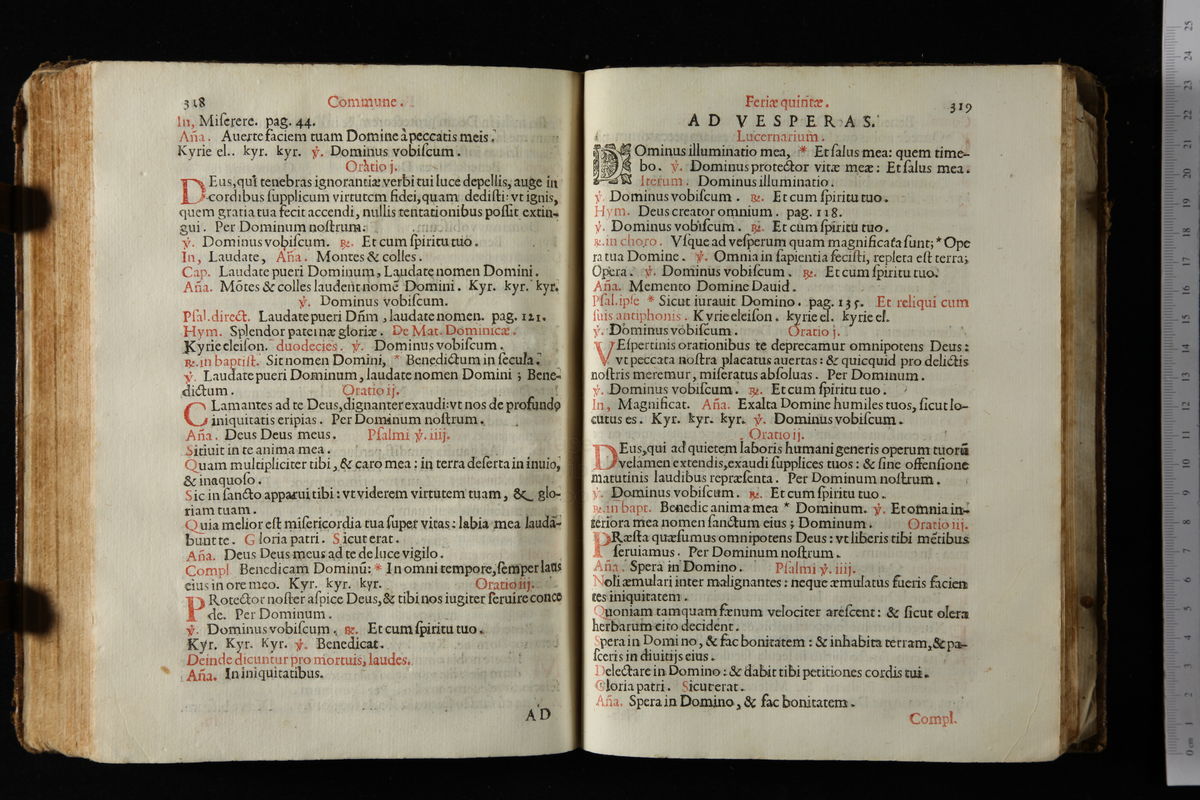 318
Commune.
In, Miserere. pag. 44.
Aña. Auerte faciem tuam Domine à peccatis meis.
Kyrie el.. kyr. kyr. ℣. Dominus vobiſcum.
Oratio j.
DEus, qui tenebras ignorantiæ verbi tui luce depellis, auge in
cordibus ſupplicum virtutem fidei, quam dediſti: vt ignis,
quem gratia tua fecit accendi, nullis tentationibus poſſit extin-
gui. Per Dominum noſtrum.
℣. Dominus vobiſcum. ℟. Et cum ſpiritu tuo.
In, Laudate, Aña. Montes & colles.
Cap. Laudate pueri Dominum, Laudate nomen Domini.
Aña. Mōtes & colles laudent nomē Domini. Kyr. kyr. kyr.
℣. Dominus vobiſcum.
Pſal. direct. Laudate pueri Dñm, laudate nomen. pag. 121.
Hym. Splendor paternæ gloriæ. De Mat. Dominicæ.
Kyrie eleiſon. duodecies. ℣. Dominus vobiſcum.
℟. in baptiſt. Sit nomen Domini, * Benedictum in ſecula.
℣. Laudate pueri Dominum, laudate nomen Domini; Bene-
dictum. Oratio ij.
CLamantes ad te Deus, dignanter exaudi: vt nos de profundo
iniquitatis eripias. Per Dominum noſtrum.
Aña. Deus Deus meus. Pſalmi ℣. iiij.
Sitiuit in te anima mea.
Quam multipliciter tibi, & caro mea: in terra deſerta in inuio,
& inaquoſo.
Sic in ſancto apparui tibi: vt viderem virtutem tuam, & glo-
riam tuam.
Quia melior eſt miſericordia tua ſuper vitas: labia mea laudā-
bunt te. Gloria patri. Sicut erat.
Aña. Deus Deus meus ad te de luce vigilo.
Compl Benedicam Dominū: * In omni tempore, ſemper laus
eius in ore meo. Kyr. kyr. kyr. Oratio iij.
PRotector noſter aſpice Deus, & tibi nos iugiter ſeruire conce
de. Per Dominum.
℣. Dominus vobiſcum. ℟. Et cum ſpiritu tuo.
Kyr. Kyr. Kyr. ℣. Benedicat.
Deinde dicuntur pro mortuis, laudes.
Aña. In iniquitatibus.
AD
Feriæ quintæ.
319
AD VESPERAS.
Lucernarium.
DOminus illuminatio mea, * Et ſalus mea: quem time-
bo. ℣. Dominus protector vitæ meæ: Et ſalus mea.
Iterum. Dominus illuminatio.
℣. Dominus vobiſcum. ℟. Et cum ſpiritu tuo.
Hym. Deus creator omnium. pag. 118.
℣. Dominus vobiſcum. ℟. Et cum ſpiritu tuo.
℟. in choro. Vſque ad veſperum quam magnificata ſunt; * Ope
ra tua Domine. ℣. Omnia in ſapientia feciſti, repleta eſt terra;
Opera. ℣. Dominus vobiſcum. ℟. Et cum ſpiritu tuo.
Aña. Memento Domine Dauid.
Pſal. ipſe * Sicut iurauit Domino. pag. 135. Et reliqui cum
ſuis antiphonis. Kyrie eleiſon. kyrie el. kyrie el.
℣. Dominus vobiſcum. Oratio j.
VEſpertinis orationibus te deprecamur omnipotens Deus:
vt peccata noſtra placatus auertas: & quicquid pro delictis
noſtris meremur, miſeratus abſoluas. Per Dominum.
℣. Dominus vobiſcum. ℟. Et cum ſpiritu tuo.
In, Magnificat. Aña. Exalta Domine humiles tuos, ſicut lo-
cutus es. Kyr. kyr. kyr. ℣. Dominus vobiſcum.
Oratio ij.
DEus, qui ad quietem laboris humani generis operum tuorū
velamen extendis, exaudi ſupplices tuos: & ſine offenſione
matutinis laudibus repræſenta. Per Dominum noſtrum.
℣. Dominus vobiſcum. ℟. Et cum ſpiritu tuo.
℟. in bapt. Benedic anima mea * Dominum. ℣. Et omnia in-
teriora mea nomen ſanctum eius; Dominum. Oratio iij.
PRæſta quæſumus omnipotens Deus: vt liberis tibi mētibus
ſeruiamus. Per Dominum noſtrum.
Aña. Spera in Domino. Pſalmi ℣. iiij.
Noli æmulari inter malignantes: neque æmulatus fueris facien
tes iniquitatem.
Quoniam tamquam fœnum velociter areſcent: & ſicut olera
herbarum cito decident.
Spera in Domino, & fac bonitatem: & inhabita terram, & pa-
ſceris in diuitijs eius.
Delectare in Domino: & dabit tibi petitiones cordis tui.
Gloria patri. Sicut erat.
Aña. Spera in Domino, & fac bonitatem.
Compl.